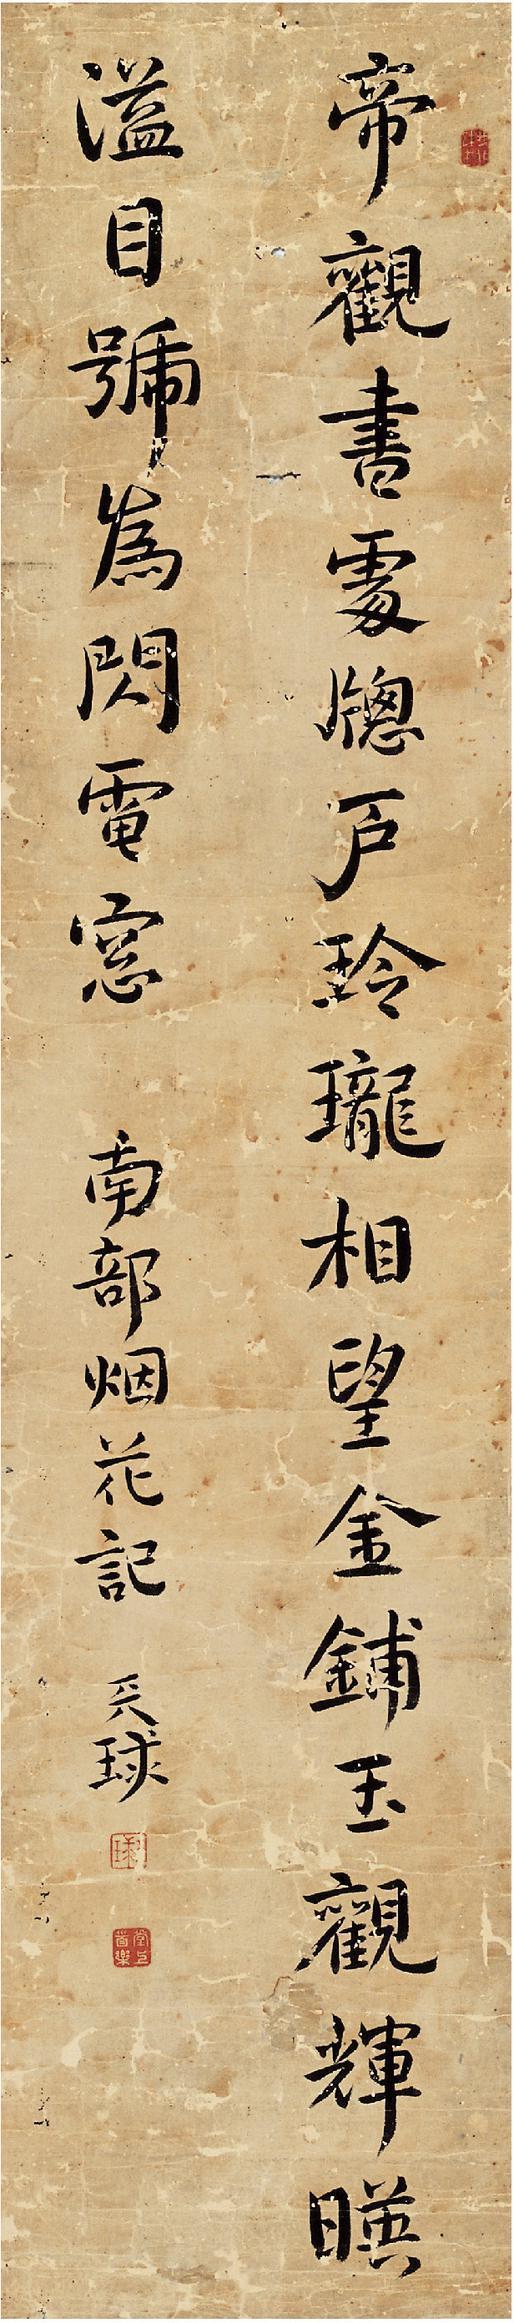 帝觀書處牕戶玲瓏相望金鋪玉觀輝暎
溢目號為閃電窓 南部烟花記 球